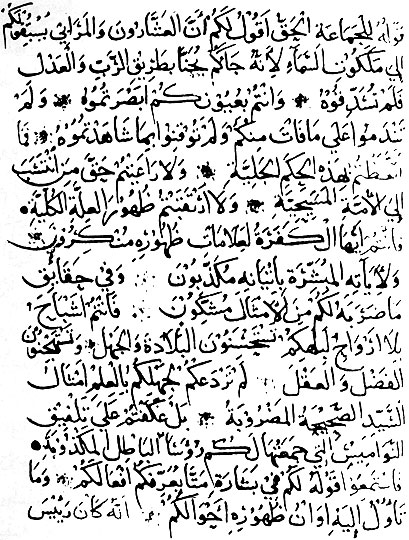 قوله للجماعة الحق اقول لكم ان العشارون والمزاني يسبقوكم
الى ملكوت السماء لانه جاكم يحنا بطريق الرب والعدل
فلم تصدقوه وانتم بعيونكم ابصرتموه ولم
تندموا على ما فات منكم ولم توقنوا بما شاهدتموه فا
اتعظتم بهذه الحكم الجلية ولا راعيتم حق من انتسب
الى الامة المسيحية ولا ارتقبتم ظهور العلة الكلية
فانتم ايها الكفرة لعلامات ظهوره منكرون
ولاياته المبشرة باتيانه مكذبون وفي حقايق
ما ضربه لكم من الامثال مشككون فانتم اشباح
بلا ارواح لبعدكم تستحسنون البلادة والجهل وتستهجنون
الفضل والعقل لم تردعكم لجهلكم بالعلم امثال
السيد الصحيحة المضروبة بل عكفتم على تلفيق
النواميس التي جمعتها لكم روسا الباطل المكذوبة
فاستمعوا قوله لكم في بشارة متا يعرفكم افعالكم وما
تاول اليه اوان ظهوره احوالكم انه كان رييس